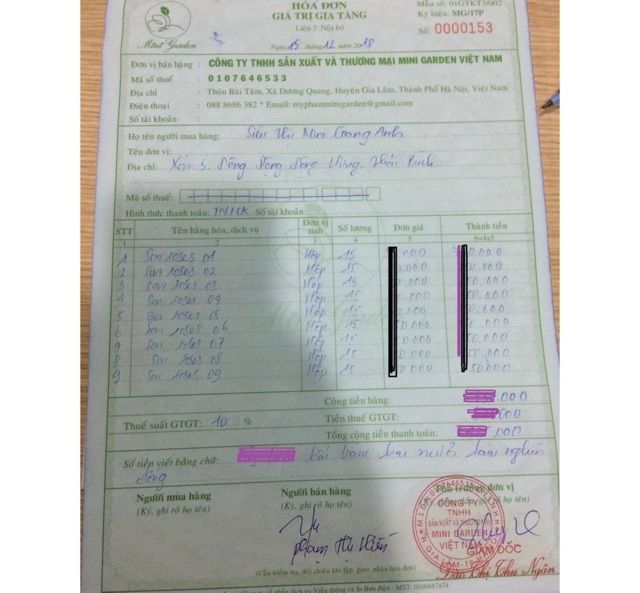 HÓA ĐƠN
GIÁ TRỊ GIA TĂNG
Liên 3: Nội bộ
Ngày 15 tháng 12 năm 2018
Mẫu số: 01GTKT3/002
Ký hiệu: MG/17P
Số: 0000153
Mint Garden
Đơn vị bán hàng : CÔNG TY TNHH SẢN XUẤT VÀ THƯƠNG MẠI MINI GARDEN VIỆT NAM
Mã số thuế : 0107646533
Địa chỉ : Thôn Bài Tâm, Xã Dương Quang, Huyện Gia Lâm, Thành Phố Hà Nội, Việt Nam
Điện thoại : 088 8686 382 * Email: myphamminigarden@gmail.com
Số tài khoản :
Họ tên người mua hàng: Siêu Thị Mini Anh
Tên đơn vị:
Địa chỉ: Xóm 5, Đông Đông Hưng, Thái Bình
Mã số thuế:
Hình thức thanh toán: TM/CK Số tài khoản:
STT Tên hàng hóa, dịch vụ Đơn vị tính Số lượng Đơn giá Thành tiền
1 2 3 4 5 6=4x5
1 Son roses 01 Hộp 15 .000 0.000
2 Son roses 02 Hộp 15 .000 0.000
3 Son roses 03 Hộp 15 .000 0.000
4 Son roses 04 Hộp 15 .000 0.000
5 Son roses 05 Hộp 15 0.000 50.000
6 Son roses 06 Hộp 15 0.000 50.000
7 Son roses 07 Hộp 15 0.000 50.000
8 Son roses 08 Hộp 15 0.000 50.000
9 Son roses 09 Hộp 15 0.000 50.000
Cộng tiền hàng: .000
Thuế suất GTGT: 10 % Tiền thuế GTGT: 000
Tổng cộng tiền thanh toán: .000
Số tiền viết bằng chữ: trăm hai mươi lăm nghìn
đồng
Người mua hàng Người bán hàng Thủ trưởng đơn vị
(Ký, ghi rõ họ tên) (Ký, ghi rõ họ tên)
CÔNG TY
TNHH
SẢN XUẤT VÀ THƯƠNG MẠI
MINI GARDEN
VIỆT NAM
GIÁM ĐỐC
Phạm Thị
Đào Thị Thu Ngân
(Cần kiểm tra, đối chiếu khi lập, giao nhận hóa đơn)